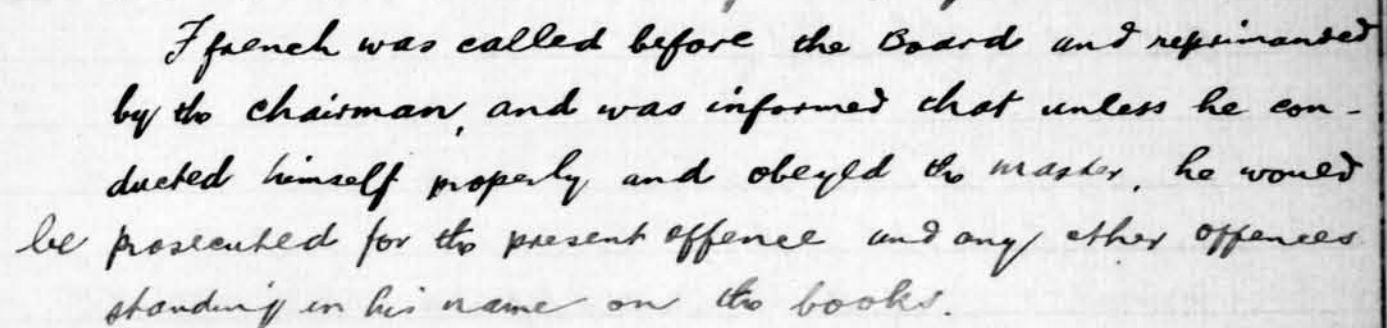 Ffrench was called before the Board and reprimanded
by the Chairman, and was informed that unless he con-
ducted himself properly and obeyed the Master, he would
be prosecuted for the present offence and any other offences
standing in his name on the books.